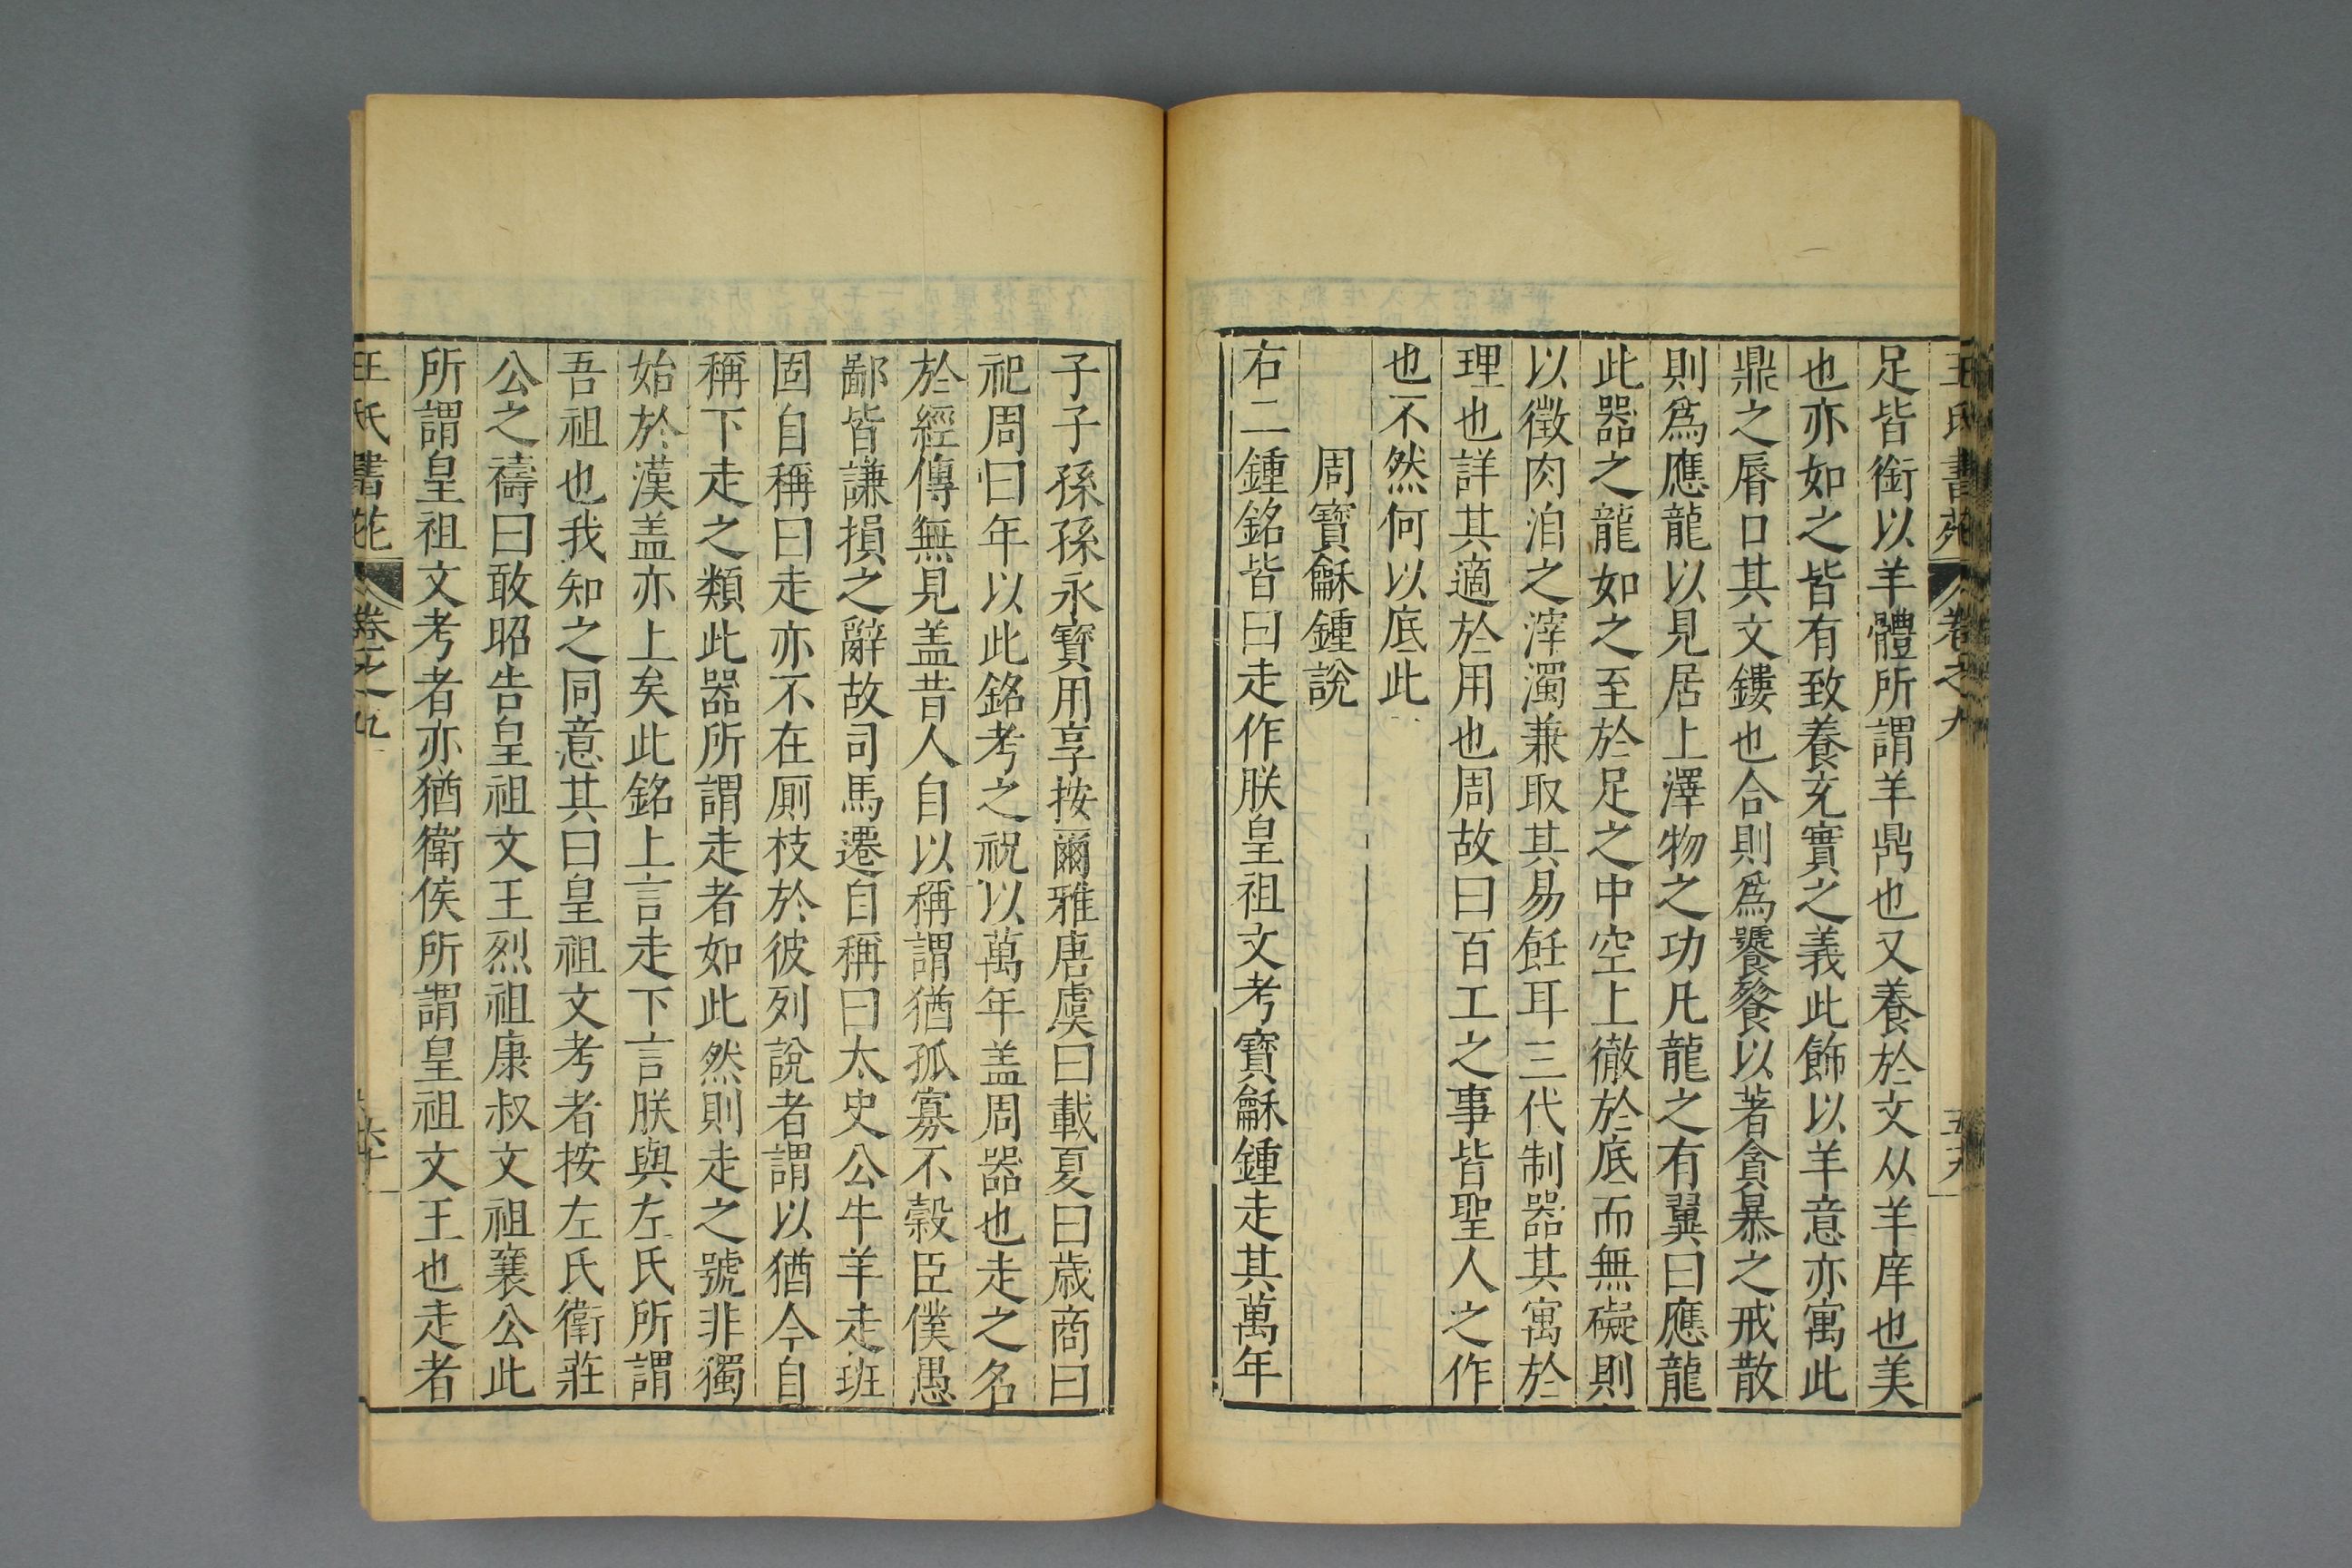 王氏書苑 卷之九 五十九
足皆銜以羊體所謂羊鼎也又養於文从羊庠也美
也亦如之皆有致養充實之義此飾以羊意亦寓此
鼎之脣口其文鏤也合則爲饕餮以著貪暴之戒散
則爲應龍以見居上澤物之功凡龍之有翼曰應龍
此器之龍如之至於足之中空上徹於底而無礙則
以徵肉洎之滓濁兼取其易飪耳三代制器其寓於
理也詳其適於用也周故曰百工之事皆聖人之作
也不然何以底此
周寶龢鍾說
右二鍾銘皆曰走作朕皇祖文考寶龢鍾走其萬年
子子孫孫永寶用享按爾雅唐虞曰載夏曰歳商曰
祀周曰年以此銘考之祝以萬年盖周器也走之名
於經傳無見盖昔人自以稱謂猶孤寡不穀臣僕愚
鄙皆謙損之辭故司馬遷自稱曰太史公牛羊走班
固自稱曰走亦不在厠枝於彼列說者謂以猶今自
稱下走之類此器所謂走者如此然則走之號非獨
始於漢盖亦上矣此銘上言走下言朕與左氏所謂
吾祖也我知之同意其曰皇祖文考者按左氏衛莊
公之禱曰敢昭告皇祖文王烈祖康叔文祖襄公此
所謂皇祖文考者亦猶衛侯所謂皇祖文王也走者
王氏書苑 卷之九 六十